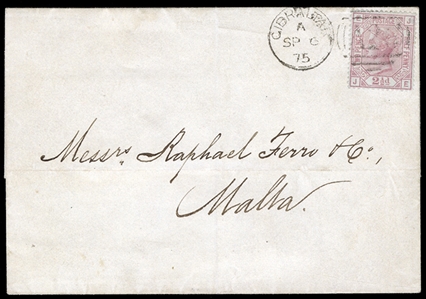 GIBRALTAR
A
SP 6
75
2½d
J E
Messrs Raphael Ferro & Co.,
Malta.